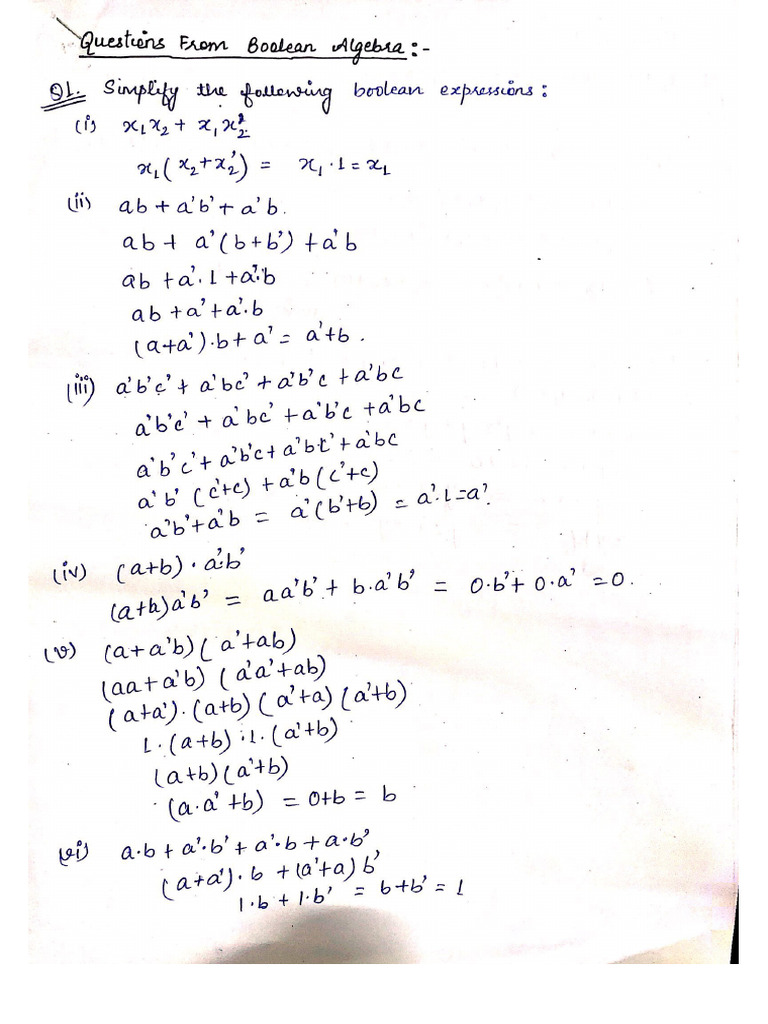 Questions From Boolean Algebra:-
Q1. Simplify the following boolean expressions:
(i) x₁x₂ + x₁x₂'
x₁(x₂+x₂') = x₁·1 = x₁
(ii) ab + a'b' + a'b.
ab + a'(b+b') + a'b
ab + a'·1 + a'·b
ab + a' + a'·b
(a+a')·b + a' = a'+b.
(iii) a'b'c' + a'bc' + a'b'c + a'bc
a'b'c' + a'bc' + a'b'c + a'bc
a'b'c' + a'b'c + a'bc' + a'bc
a'b'(c'+c) + a'b(c'+c)
a'b' + a'b = a'(b'+b) = a'·1 = a'.
(iv) (a+b)·a'·b'
(a+b)a'b' = aa'b' + b·a'b' = 0·b' + 0·a' = 0.
(v) (a+a'b)(a'+ab)
(aa+a'b)(a'a'+ab)
(a+a')·(a+b)(a'+a)(a'+b)
1·(a+b)·1·(a'+b)
(a+b)(a'+b)
(a·a'+b) = 0+b = b
(vi) a·b + a'·b' + a'·b + a·b'
(a+a')·b + (a'+a)b'
1·b + 1·b' = b+b' = 1